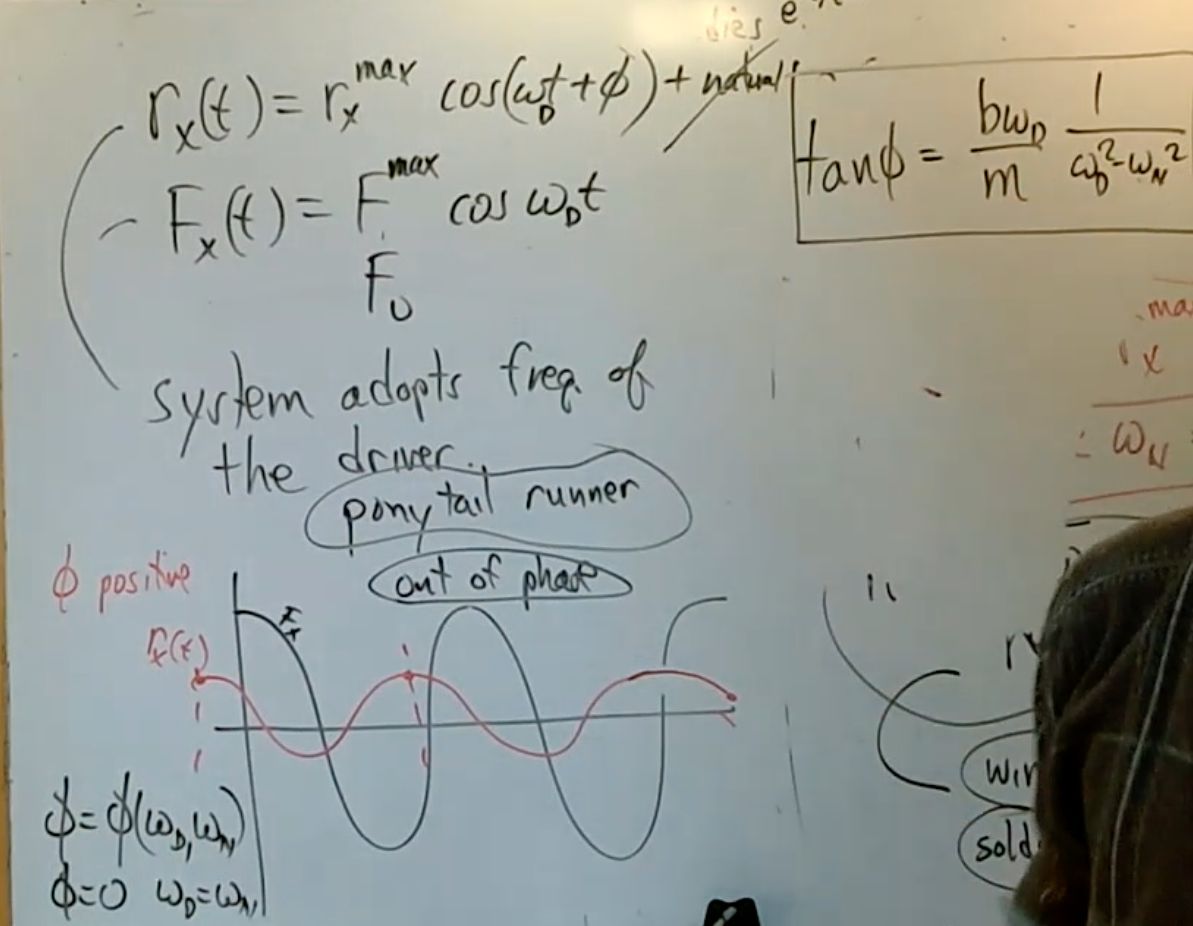 dies e
rₓ(t) = rₓᵐᵃˣ cos(ω_D t + ϕ) + natural
Fₓ(t) = Fᵐᵃˣ cos ω_D t
F₀
tanϕ = bω_D/m 1/(ω_D² - ω_N²)
system adopts freq. of
the driver.
ponytail runner
out of phase
ϕ positive
Fₓ
rₓ(t)
ϕ = ϕ(ω_D, ω_N)
ϕ = 0 ω_D = ω_N
ma
x
= ω_N
win
sold